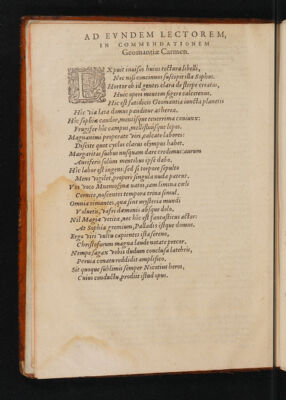 AD EVNDEM LECTOREM,
IN COMMENDATIONEM
Geomantiæ Carmen.
EXpuit inuisas huius rectura libelli,
Nec nisi concinnus suscipit illa Sophos.
Hortor ob id gentes clara de stirpe creatas,
Huic operi mentem figere calcetenus.
Hic est fatidicis Geomantia iuncta planetis
Hic via lata domus panditur ætherea.
Hic sophiæ candor, mentisque
Frugifer hic campus, mellifluusque lepos.
Magnanimi properate viri, palcate labores:
Discite quot cyclos clarus olympus habet.
Margaritas suibus nusquam dare credimus: aurum
Auriferis solùm mentibus ipsa dabo.
Hic labor est ingens: sed si torpore sepulto
Mens vigilet, propere singula nuda patent.
Vix voce Mnemosina vatis, cum limina cœli
Cernite, noscentes tempora trina simul.
Omnia rimantes, quæ sint mysteria mundi
Voluetis, rasis dæmonis absque dolo.
Nil Magiæ vetitæ, nec hic est fantasticus actor:
At Sophiæ gremium, Palladis istque domus.
Ergo viri vultu capientes ista sereno,
Christoforum magna laude notate precor.
Nempe sagax vobis dudum conclusa latebris,
Peruia conatu reddidit amplifico.
Sit quoque sublimis semper Nicotius heros,
Cuius conductu, prodiit istud opus.